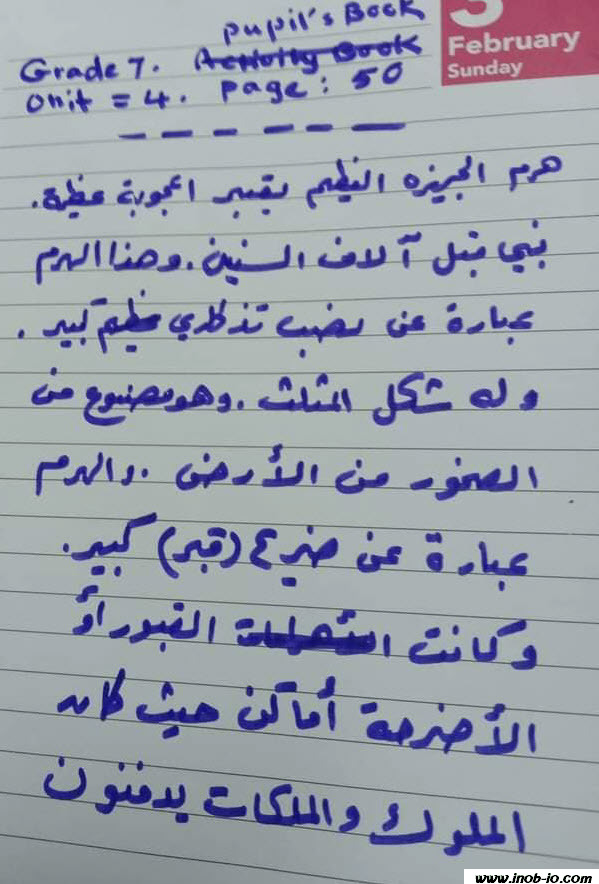 pupil's Book
Grade 7. Activity Book
Unit = 4. page: 50
3
February
Sunday
هرم الجيزه العظيم يعتبر اعجوبة عظيمة.
بني قبل آلاف السنين. وهذا الهرم
عبارة عن نصب تذكاري عظيم كبير.
وله شكل المثلث. وهو مصنوع من
الصخور من الأرض. والهرم
عبارة عن ضريح (قبر) كبير.
وكانت القبور أو
الأضرحة أماكن حيث كان
الملوك والملكات يدفنون
www.inob-io.com